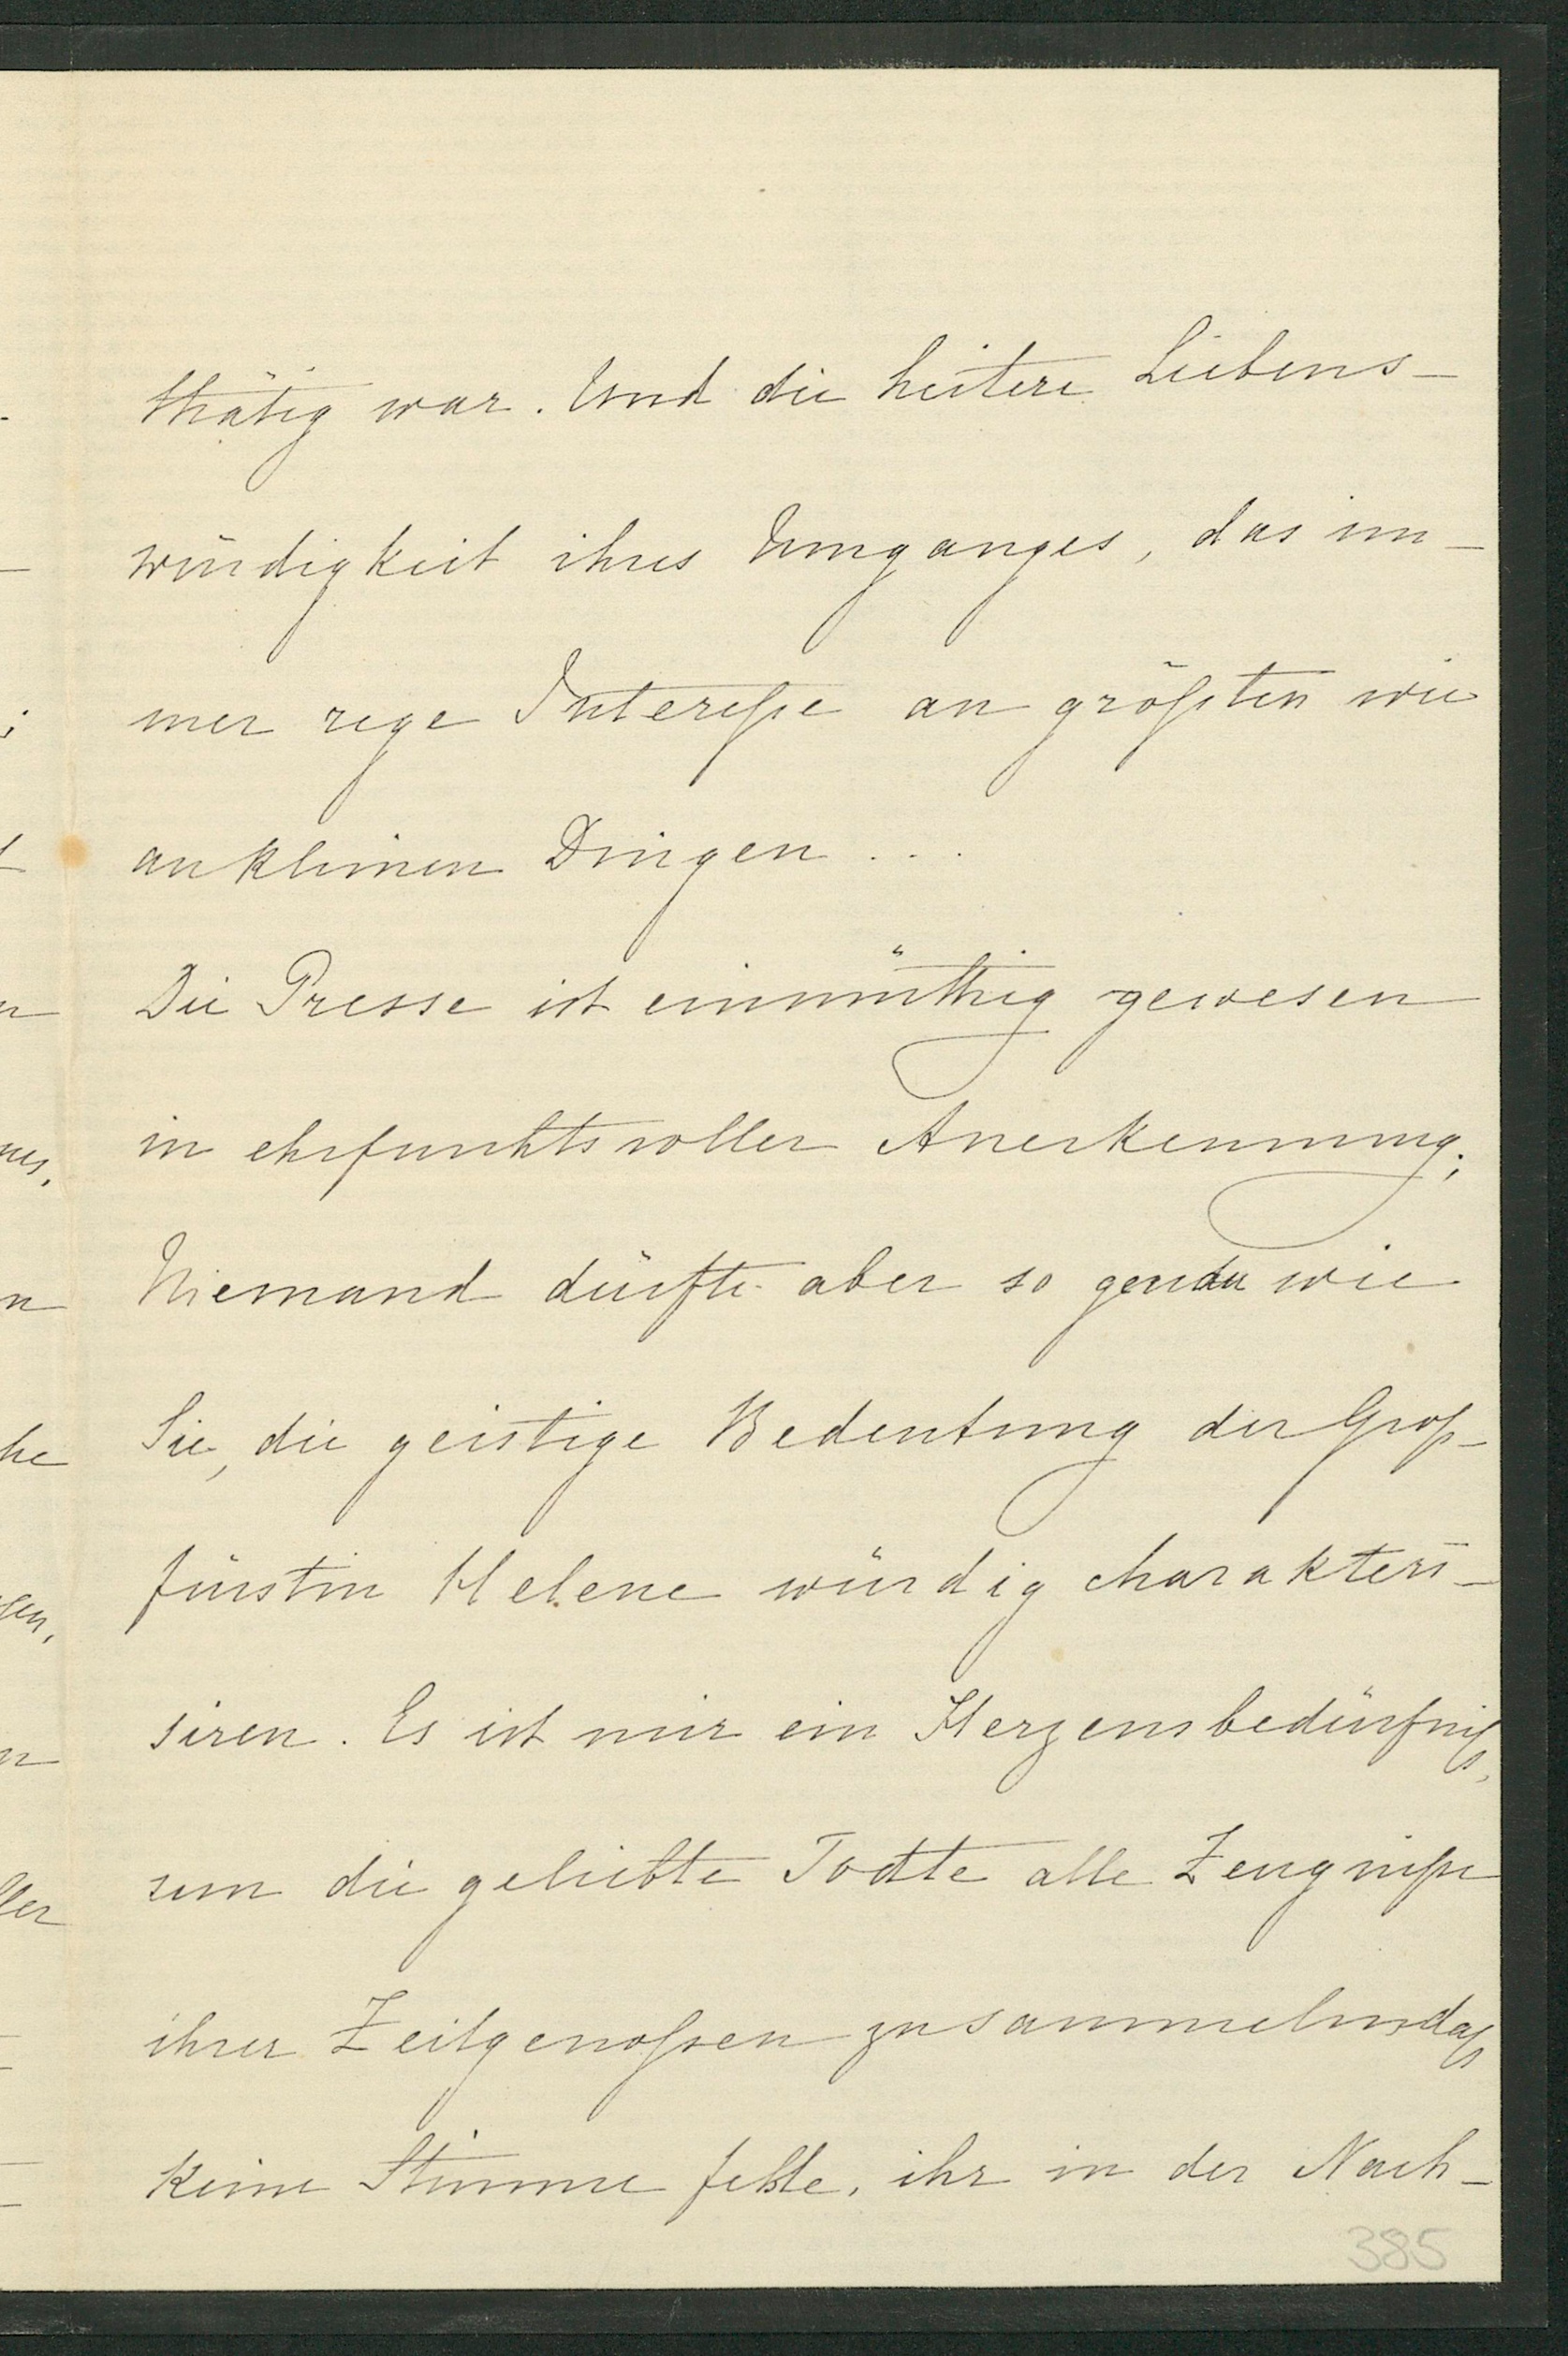 thätig war. Und die heitere Liebens-
würdigkeit ihres Umganges, das im-
mer rege Intereße an größten wie
an kleinen Dingen ...
Die Presse ist einmüthig gewesen
in ehrfurchtsvoller Anerkennung;
Niemand dürfte aber so gerade wie
Sie, die geistige Bedeutung der Groß-
fürstin Helene würdig charakteri-
siren. Es ist mir ein Herzensbedürfniß,
um die geliebte Todte alle Zeugniße
ihrer Zeitgenoßen zu sammeln, daß
keine Stimme fehle, ihr in der Nach-
385